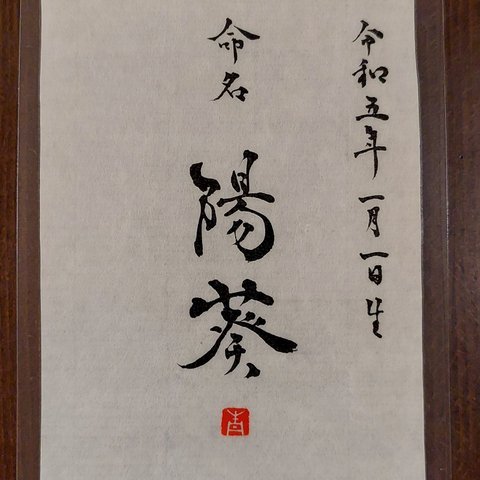 令和五年一月一日生
命名
陽葵